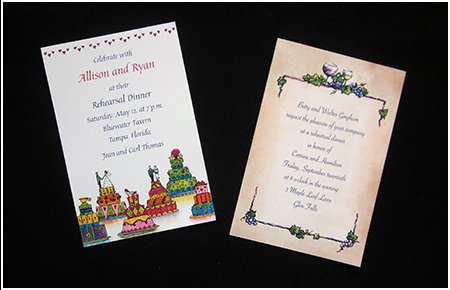 Celebrate with
Allison and Ryan
at their
Rehearsal Dinner
Saturday, May 12, at 7 p.m.
Bluewater Tavern
Tampa, Florida
Jean and Carl Thomas
Betty and Walter Gingham
request the pleasure of your company
at a rehearsal dinner
in honor of
and Hamilton
Friday, September twentieth
at 6 o'clock in the evening
3 Maple Leaf Lane
Glen Falls